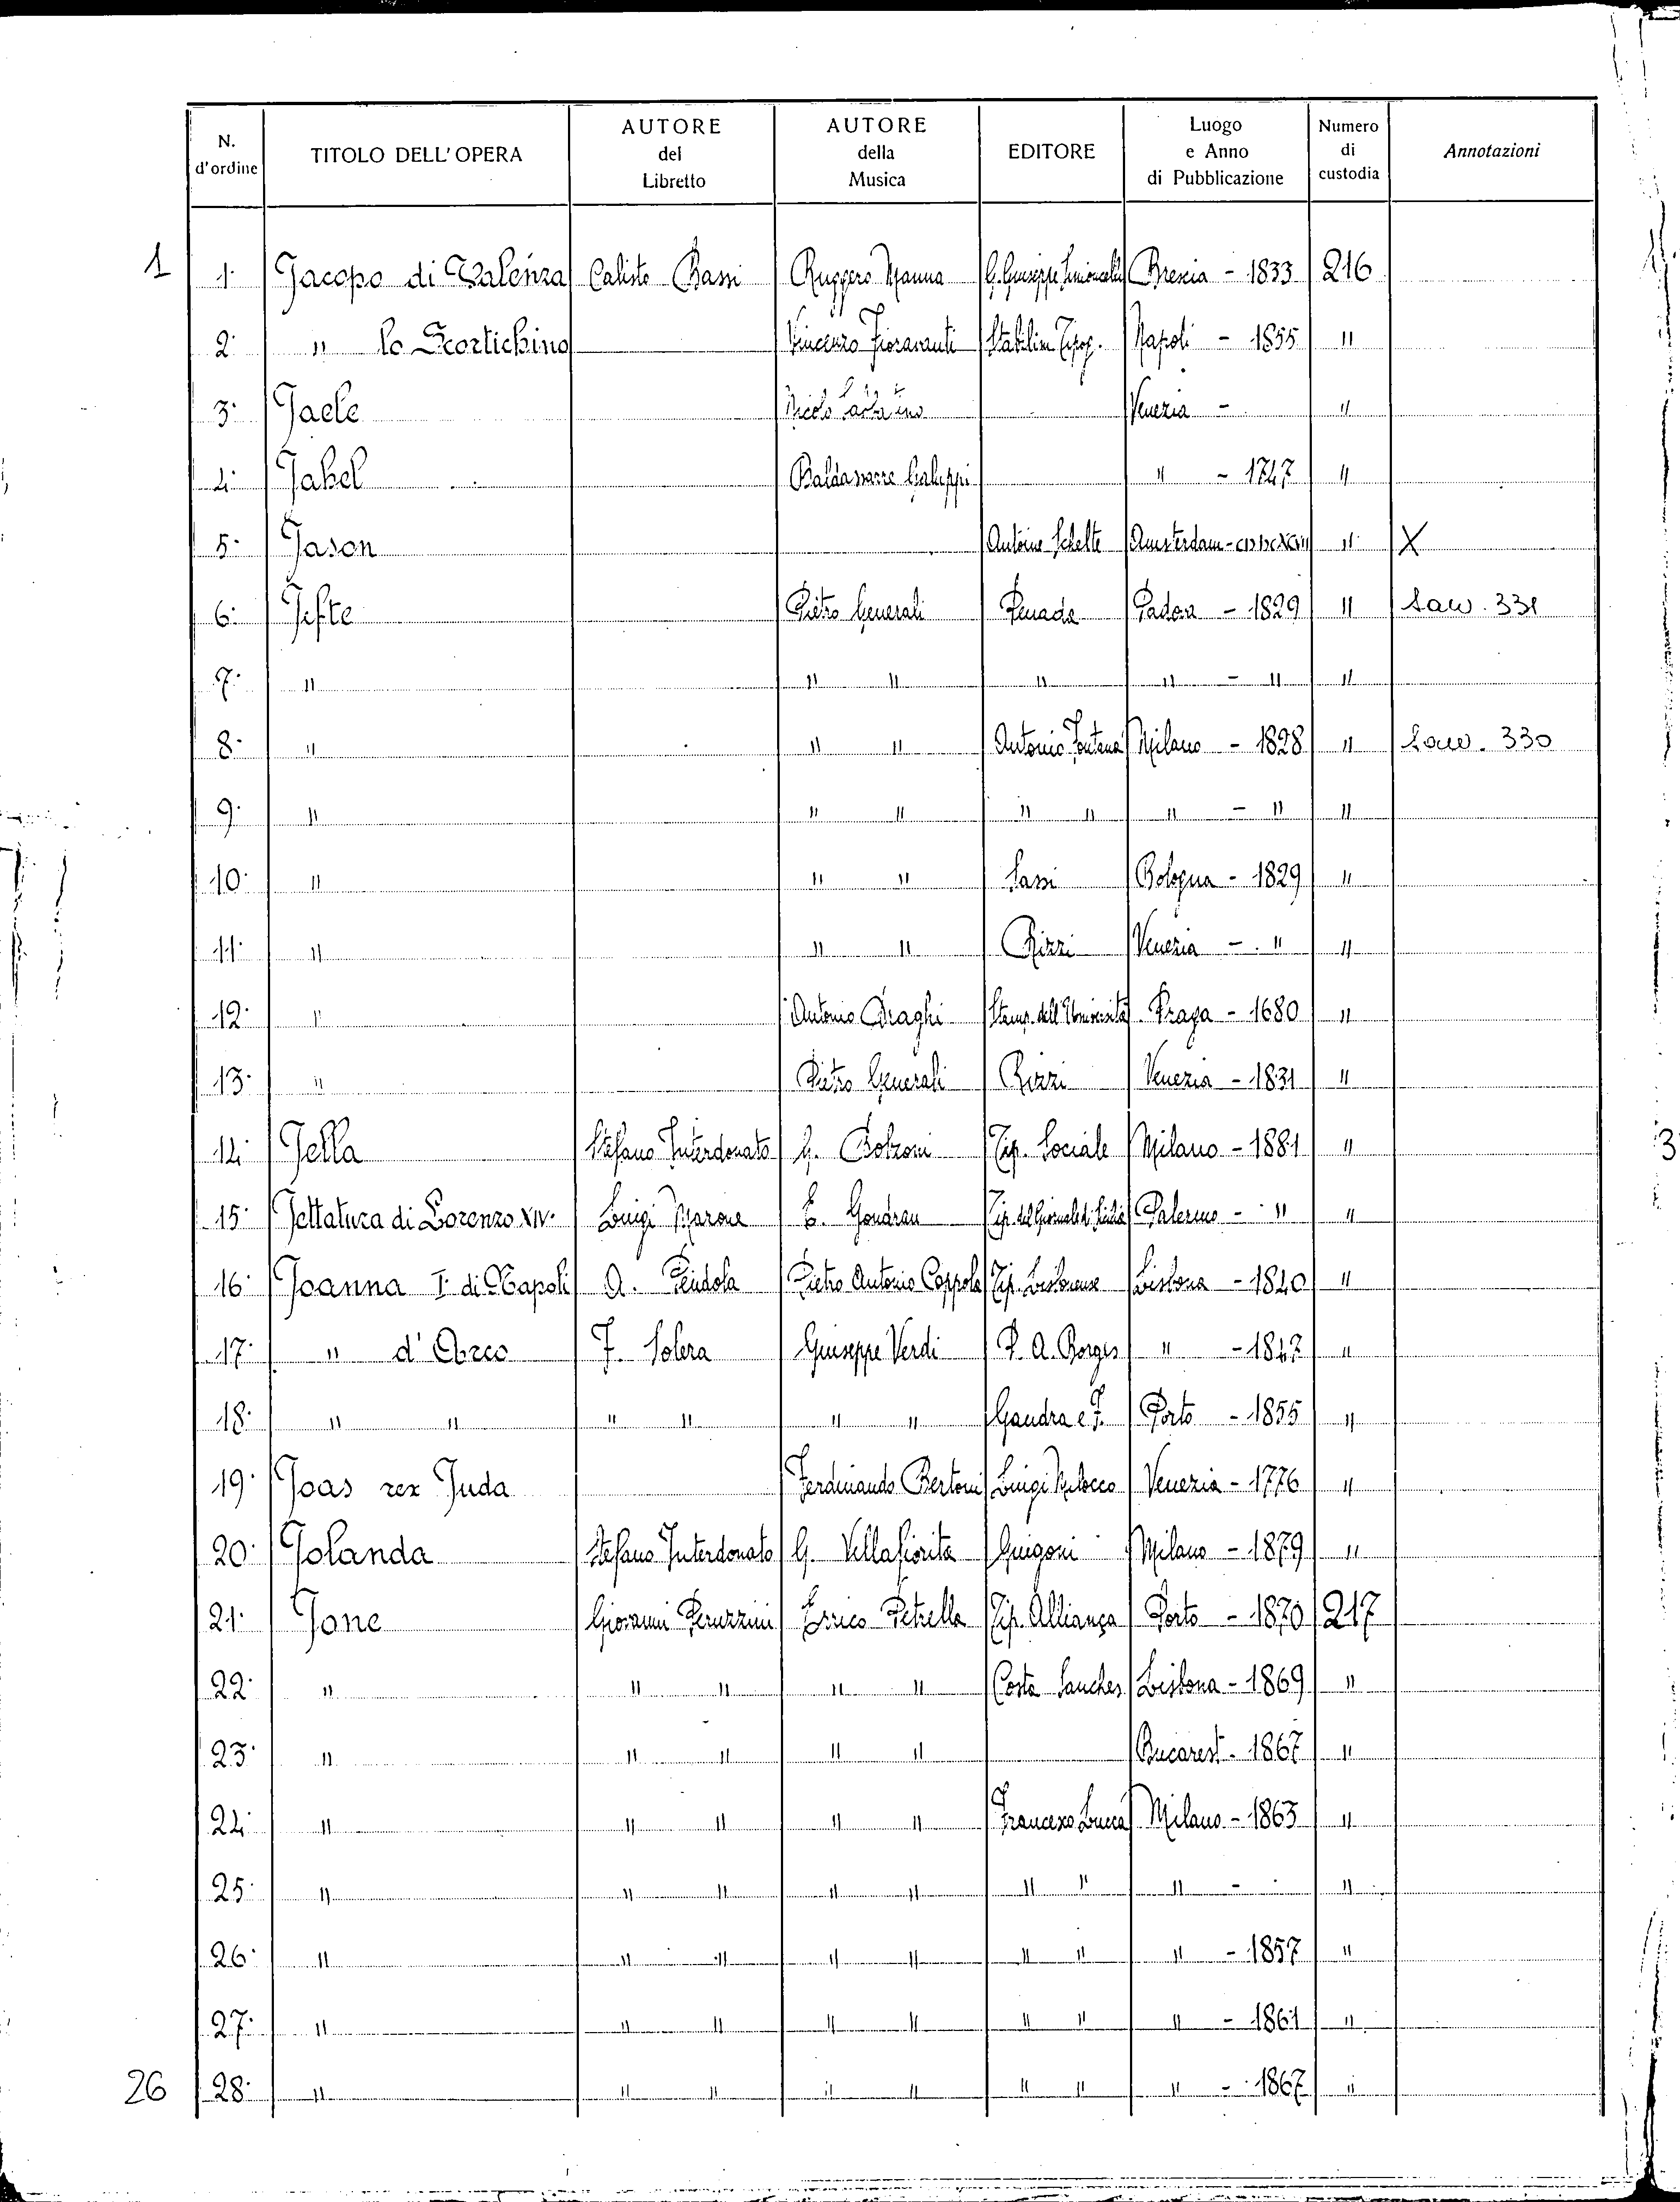 N. d'ordine TITOLO DELL'OPERA AUTORE del Libretto AUTORE della Musica EDITORE Luogo e Anno di Pubblicazione Numero di custodia Annotazioni
1 1. Jacopo di Valenza Calisto Bassi Ruggero Manna G. Giuseppe Brescia - 1833 216
2. " lo Scortichino Vincenzo Fioravanti Stabilim. Tipog. Napoli - 1855 "
3. Jaele Nicolo Venezia - "
4. Jahel Baldassarre Galuppi " - 1747 "
5. Jason Antoine Schelte Amsterdam - " X
6. Jefte Pietro Generali Penada Padova - 1829 " Saw. 331
7. " " " " " - " "
8. " " " Antonio Fontana Milano - 1828 " Saw. 330
9. " " " " " " - " "
10. " " " Sassi Bologna - 1829 "
11. " " " Rizzi Venezia - " "
12. " Antonio Draghi Stamp. dell'Università Praga - 1680 "
13. " Pietro Generali Rizzi Venezia - 1831 "
14. Jella Stefano Interdonato G. Bolzoni Tip. Sociale Milano - 1881 "
15. Jettatura di Lorenzo XIV. Luigi Marone E. Gondran Tip. del Giornale di Sicilia Palermo - " "
16. Joanna I. di Napoli A. Pendola Pietro Antonio Coppola Tip. Lisbonense Lisbona - 1840 "
17. " d'Arco T. Solera Giuseppe Verdi P. A. Borges " - 1847 "
18. " " " " " " Gandra e F. Porto - 1855 "
19. Joas rex Juda Ferdinando Bertoni Luigi Milocco Venezia - 1776 "
20. Jolanda Stefano Interdonato G. Villafiorita Guigoni Milano - 1879 "
21. Jone Giovanni Peruzzini Errico Petrella Tip. Alliança Porto - 1870 217
22. " " " " " Costa Sanches Lisbona - 1869 "
23. " " " " " Bucarest - 1867 "
24. " " " " " Francesco Lucca Milano - 1863 "
25. " " " " " " " " - "
26. " " " " " " " " - 1857 "
27. " " " " " " " " - 1861 "
26 28. " " " " " " " " - 1867 "
3